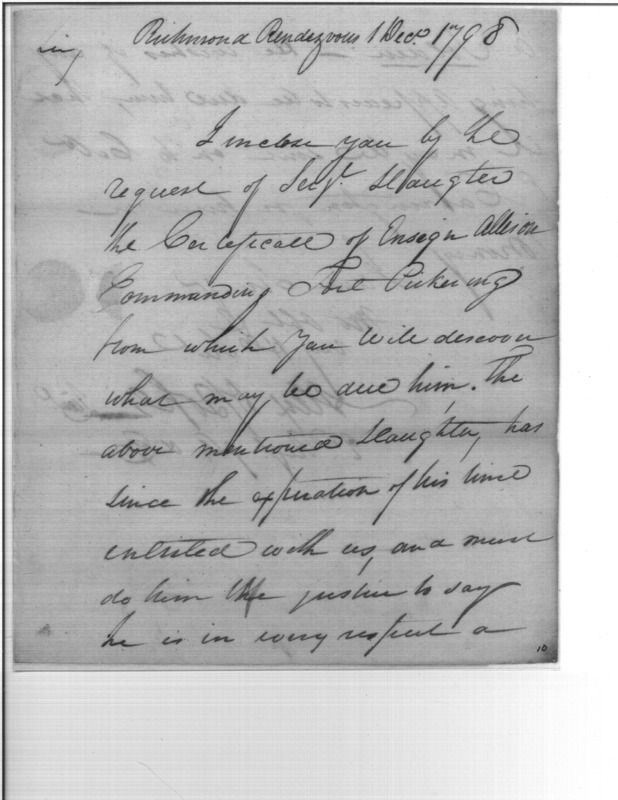 Richmond Rendezvous 1 Decr. 1798
Sir,
I inclose you by the
request of Serjt. Slaughter
the Certificate of Ensign Allison
Commanding Fort Pickering
from which you will discover
what may be due him. The
above mentioned Slaughter, has
since the expiration of his time
enlisted with us, and must
do him the justice to say
he is in every respect a
10